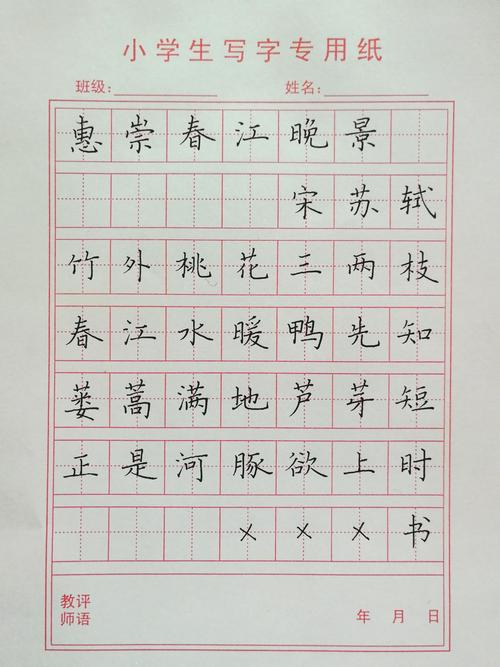 小学生写字专用纸
班级: 姓名:
惠崇春江晚景
宋苏轼
竹外桃花三两枝
春江水暖鸭先知
蒌蒿满地芦芽短
正是河豚欲上时
×××书
教评
师语 年 月 日